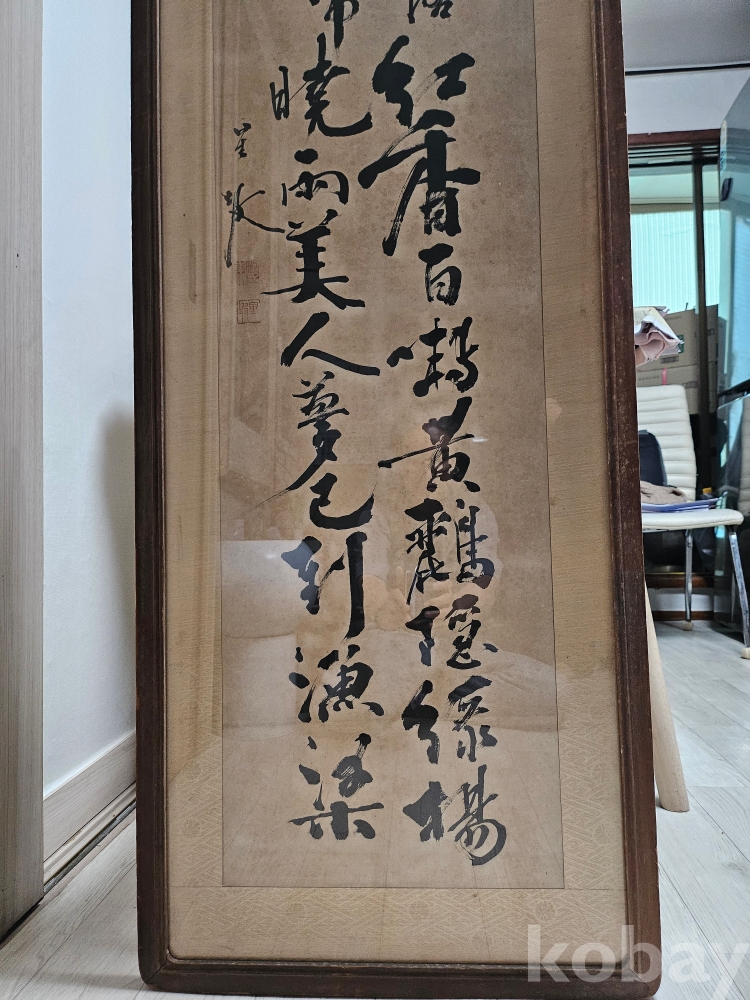 紅香百囀黃鸝隱綠楊
曉雨美人夢已到漁梁
星坡
kobay